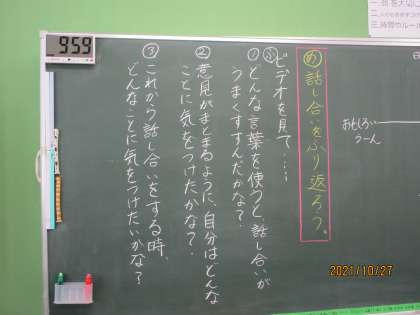 一、話を大なに
三、時間やルール
9 59
め 話し合いをふり返ろう。
ふ ビデオを見て‥‥
① どんな言葉を使うと、話し合いが
うまくすすんだかな？
② 意見がまとまるように、自分はどんな
ことに気をつけたかな？
③ これから話し合いをする時、
どんなことに気をつけたいかな？
おもしろい
うーん
2021/10/27